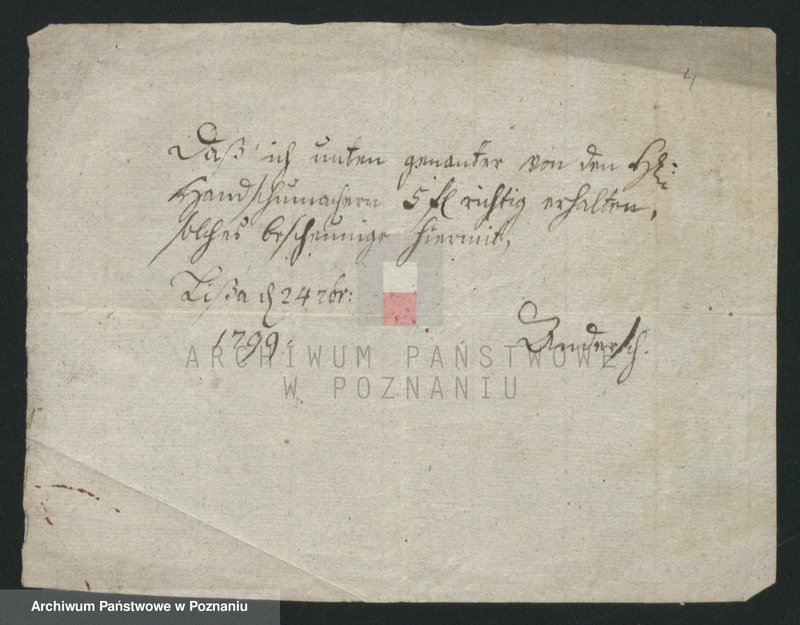 4
Daß ich unten genanter von den HE:
Handschumachern 5 fl richtig erhalten,
solches bescheunige hiermit,
Lißa d 24 7br:
1799.
Andersch.
ARCHIWUM PAŃSTWOWE
W POZNANIU
Archiwum Państwowe w Poznaniu